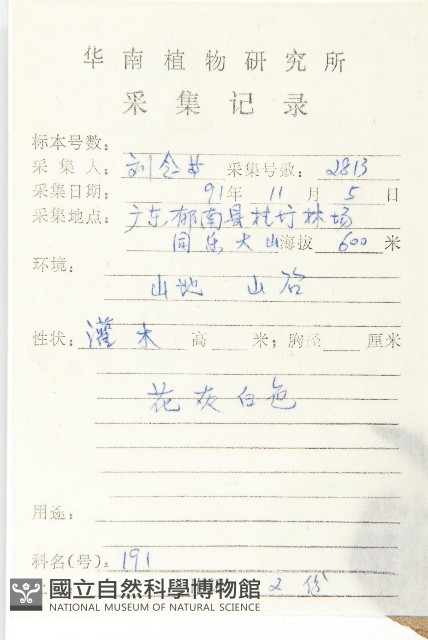 华南植物研究所
采集记录
标本号数：
采集人：刘念 采集号数：2813
采集日期：91年11月5日
采集地点：广东郁南县桂圩林场
同乐大山海拔600米
环境：
山地 山谷
性状：灌木 高 米；胸径 厘米
花灰白色
用途：
科名(号)：191
2份
國立自然科學博物館
NATIONAL MUSEUM OF NATURAL SCIENCE